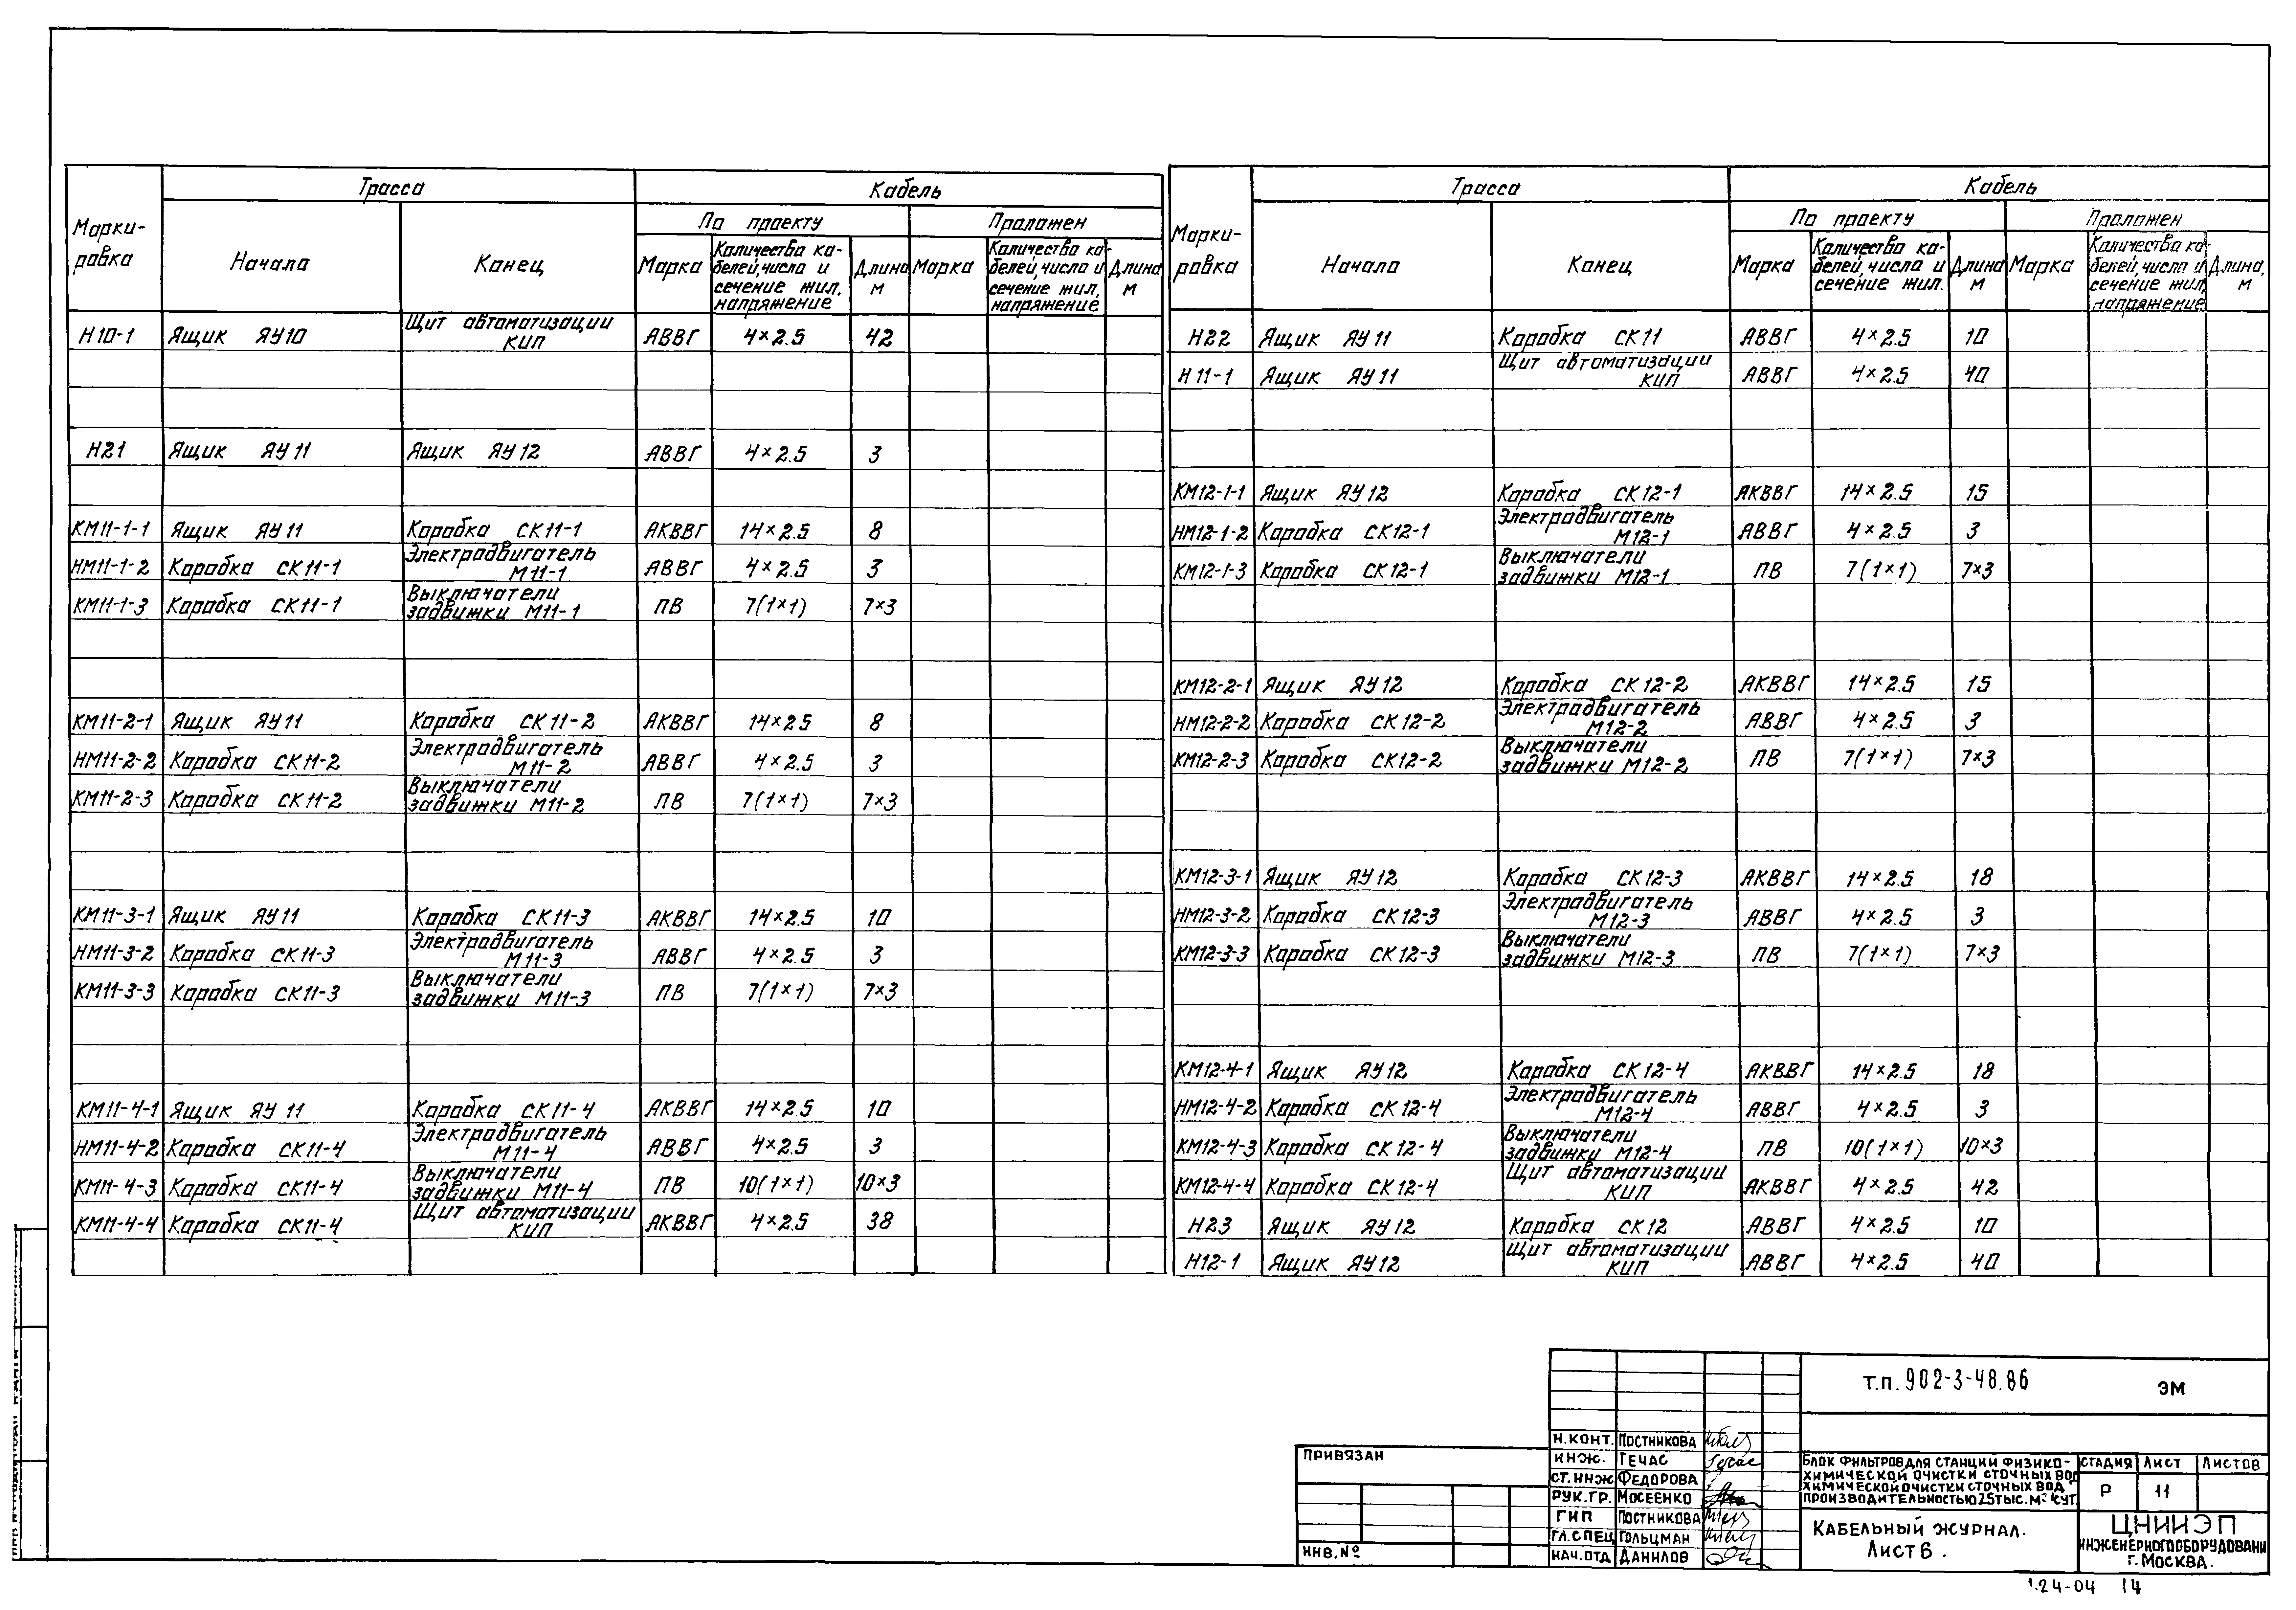 Марки-
ровка
Трасса
Кабель
Начало
Конец
По проекту
Проложен
Марка
Количество ка-
белей, число и
сечение жил,
напряжение
Длина
м
Марка
Количество ка-
белей, число и
сечение жил,
напряжение
Длина
м
Н10-1 Ящик ЯУ10 Щит автоматизации КИП АВВГ 4×2.5 42
Н21 Ящик ЯУ11 Ящик ЯУ12 АВВГ 4×2.5 3
КМ11-1-1 Ящик ЯУ11 Коробка СК11-1 АКВВГ 14×2.5 8
НМ11-1-2 Коробка СК11-1 Электродвигатель М11-1 АВВГ 4×2.5 3
КМ11-1-3 Коробка СК11-1 Выключатели задвижки М11-1 ПВ 7(1×1) 7×3
КМ11-2-1 Ящик ЯУ11 Коробка СК11-2 АКВВГ 14×2.5 8
НМ11-2-2 Коробка СК11-2 Электродвигатель М11-2 АВВГ 4×2.5 3
КМ11-2-3 Коробка СК11-2 Выключатели задвижки М11-2 ПВ 7(1×1) 7×3
КМ11-3-1 Ящик ЯУ11 Коробка СК11-3 АКВВГ 14×2.5 10
НМ11-3-2 Коробка СК11-3 Электродвигатель М11-3 АВВГ 4×2.5 3
КМ11-3-3 Коробка СК11-3 Выключатели задвижки М11-3 ПВ 7(1×1) 7×3
КМ11-4-1 Ящик ЯУ11 Коробка СК11-4 АКВВГ 14×2.5 10
НМ11-4-2 Коробка СК11-4 Электродвигатель М11-4 АВВГ 4×2.5 3
КМ11-4-3 Коробка СК11-4 Выключатели задвижки М11-4 ПВ 10(1×1) 10×3
КМ11-4-4 Коробка СК11-4 Щит автоматизации КИП АКВВГ 4×2.5 38
Марки-
ровка
Трасса
Кабель
Начало
Конец
По проекту
Проложен
Марка
Количество ка-
белей, число и
сечение жил.
Длина
м
Марка
Количество ка-
белей, число и
сечение жил,
напряжение
Длина,
м
Н22 Ящик ЯУ11 Коробка СК11 АВВГ 4×2.5 10
Н11-1 Ящик ЯУ11 Щит автоматизации КИП АВВГ 4×2.5 40
КМ12-1-1 Ящик ЯУ12 Коробка СК12-1 АКВВГ 14×2.5 15
НМ12-1-2 Коробка СК12-1 Электродвигатель М12-1 АВВГ 4×2.5 3
КМ12-1-3 Коробка СК12-1 Выключатели задвижки М12-1 ПВ 7(1×1) 7×3
КМ12-2-1 Ящик ЯУ12 Коробка СК12-2 АКВВГ 14×2.5 15
НМ12-2-2 Коробка СК12-2 Электродвигатель М12-2 АВВГ 4×2.5 3
КМ12-2-3 Коробка СК12-2 Выключатели задвижки М12-2 ПВ 7(1×1) 7×3
КМ12-3-1 Ящик ЯУ12 Коробка СК12-3 АКВВГ 14×2.5 18
НМ12-3-2 Коробка СК12-3 Электродвигатель М12-3 АВВГ 4×2.5 3
КМ12-3-3 Коробка СК12-3 Выключатели задвижки М12-3 ПВ 7(1×1) 7×3
КМ12-4-1 Ящик ЯУ12 Коробка СК12-4 АКВВГ 14×2.5 18
НМ12-4-2 Коробка СК12-4 Электродвигатель М12-4 АВВГ 4×2.5 3
КМ12-4-3 Коробка СК12-4 Выключатели задвижки М12-4 ПВ 10(1×1) 10×3
КМ12-4-4 Коробка СК12-4 Щит автоматизации КИП АКВВГ 4×2.5 42
Н23 Ящик ЯУ12 Коробка СК12 АВВГ 4×2.5 10
Н12-1 Ящик ЯУ12 Щит автоматизации КИП АВВГ 4×2.5 40
ПРИВЯЗАН
ИНВ.№
Т.П. 902-3-48.86 ЭМ
Н.КОНТ. ПОСТНИКОВА
ИНЖ. ГЕЧАС
СТ.ИНЖ ФЕДОРОВА
РУК.ГР. МОСЕЕНКО
ГИП ПОСТНИКОВА
ГЛ.СПЕЦ ГОЛЬЦМАН
НАЧ.ОТД ДАНИЛОВ
БЛОК ФИЛЬТРОВ ДЛЯ СТАНЦИИ ФИЗИКО-
ХИМИЧЕСКОЙ ОЧИСТКИ СТОЧНЫХ ВОД
ХИМИЧЕСКОЙ ОЧИСТКИ СТОЧНЫХ ВОД
ПРОИЗВОДИТЕЛЬНОСТЬЮ 25 ТЫС. М³/СУТ.
СТАДИЯ ЛИСТ ЛИСТОВ
Р 11
КАБЕЛЬНЫЙ ЖУРНАЛ.
ЛИСТ 6.
ЦНИИЭП
ИНЖЕНЕРНОГО ОБОРУДОВАНИ
Г. МОСКВА.
24-04 14